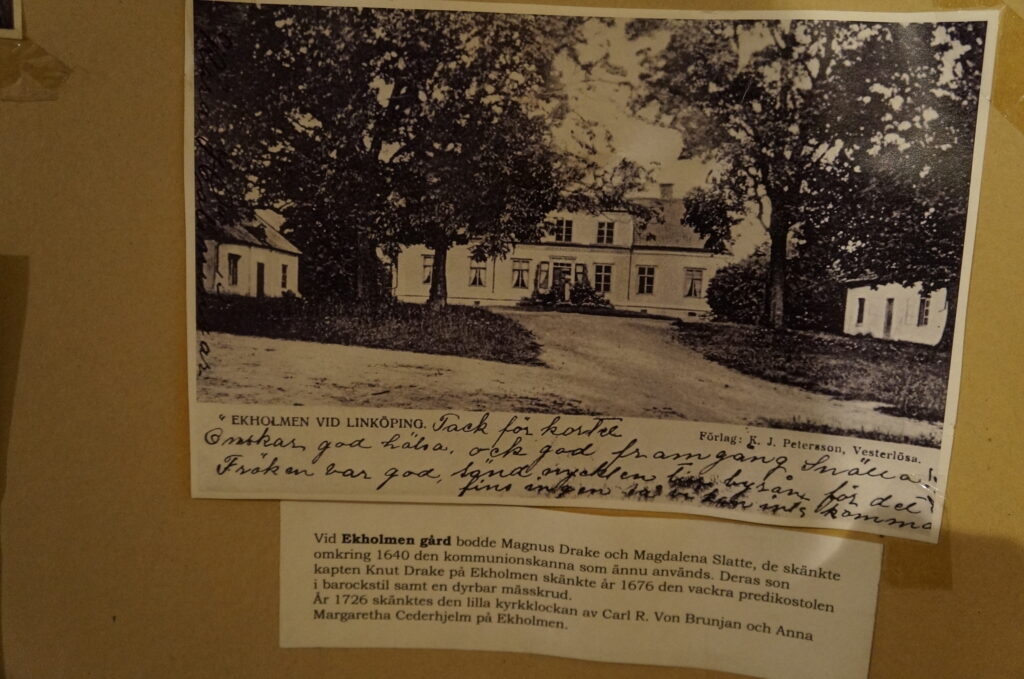 "EKHOLMEN VID LINKÖPING. Tack för kortet
Förlag: K. J. Petersson, Vesterlösa.
Önskar god hälsa, ock god framgång Snälla
Fröken var god, sänd nyckeln till byrån för det
fins ingen så vi kan inte komma
Vid Ekholmen gård bodde Magnus Drake och Magdalena Slatte, de skänkte
omkring 1640 den kommunionskanna som ännu används. Deras son
kapten Knut Drake på Ekholmen skänkte år 1676 den vackra predikostolen
i barockstil samt en dyrbar mässkrud.
År 1726 skänktes den lilla kyrkklockan av Carl R. Von Brunjan och Anna
Margaretha Cederhjelm på Ekholmen.